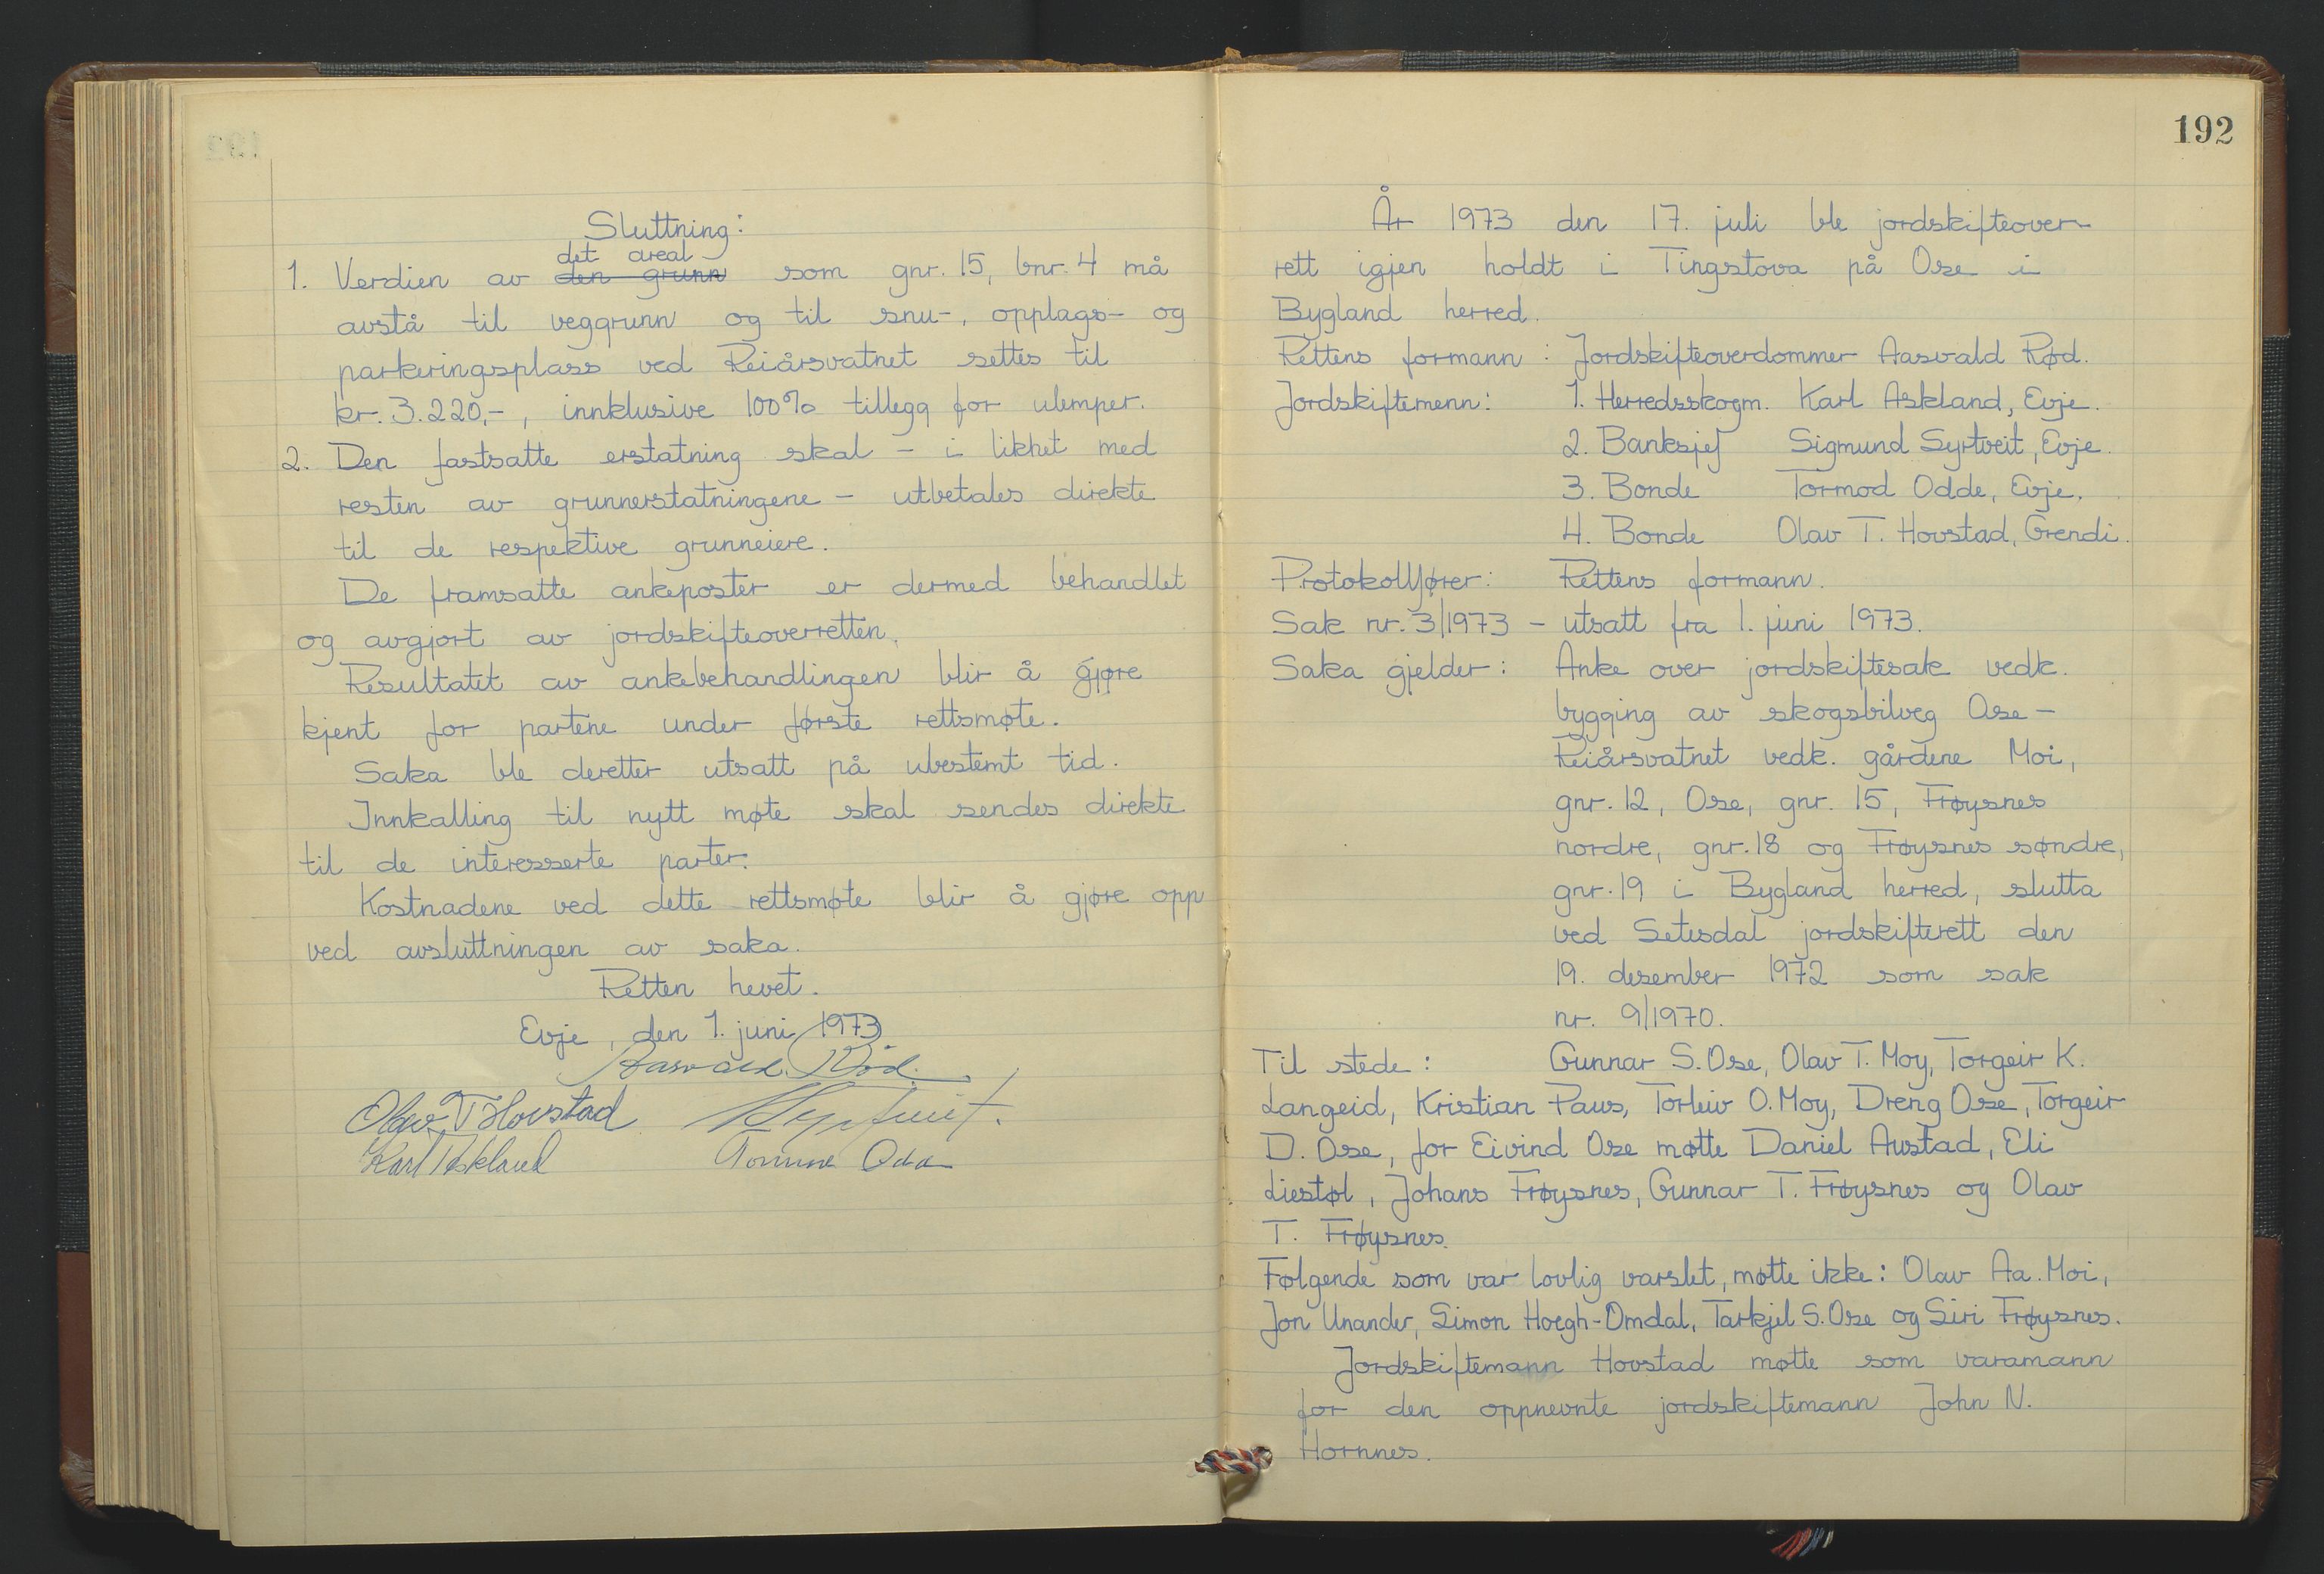 Sluttning:
det areal
1. Verdien av den grunn som gnr. 15, bnr. 4 må
avstå til veggrunn og til snu-, opplags- og
parkeringsplass ved Reiårsvatnet settes til
kr. 3.220,-, innklusive 100% tillegg for ulemper.
2. Den fastsatte erstatning skal - i likhet med
resten av grunnerstatningene - utbetales direkte
til de respektive grunneiere.
De framsatte ankeposter er dermed behandlet
og avgjort av jordskifteoverretten.
Resultatet av ankebehandlingen blir å gjøre
kjent for partene under første rettsmøte.
Saka ble deretter utsatt på ubestemt tid.
Innkalling til nytt møte skal sendes direkte
til de interesserte parter.
Kostnadene ved dette rettsmøte blir å gjøre opp
ved avsluttningen av saka.
Retten hevet.
Evje, den 1. juni 1973
Aasvald Rød.
Olav T Hovstad
Karl Askland
192
År 1973 den 17. juli ble jordskifteover-
rett igjen holdt i Tingstova på Ose i
Bygland herred.
Rettens formann: Jordskifteoverdommer Aasvald Rød.
Jordskiftemenn: 1. Herredsskogm. Karl Askland, Evje.
2. Banksjef Sigmund Syrtveit, Evje.
3. Bonde Tormod Odde, Evje.
4. Bonde Olav T. Hovstad, Grendi.
Protokollfører: Rettens formann.
Sak nr. 3/1973 - utsatt fra 1. juni 1973.
Saka gjelder: Anke over jordskiftesak vedk.
bygging av skogsbilveg Ose-
Reiårsvatnet vedk. gårdene Moi,
gnr. 12, Ose, gnr. 15, Frøysnes
nordre, gnr. 18 og Frøysnes søndre,
gnr. 19 i Bygland herred, slutta
ved Setesdal jordskifterett den
19. desember 1972 som sak
nr. 9/1970.
Til stede: Gunnar S. Ose, Olav T. Moy, Torgeir K.
Langeid, Kristian Paus, Torleiv O. Moy, Dreng Ose, Torgeir
D. Ose, for Eivind Ose møtte Daniel Austad, Eli
Liestøl, Johans Frøysnes, Gunnar T. Frøysnes og Olav
T. Frøysnes.
Følgende som var lovlig varslet, møtte ikke: Olav Aa. Moi,
Jon Unander, Simon Hoegh-Omdal, Tarkjel S. Ose og Siri Frøysnes.
Jordskiftemann Hovstad møtte som varamann
for den oppnevnte jordskiftemann John N.
Hornnes.